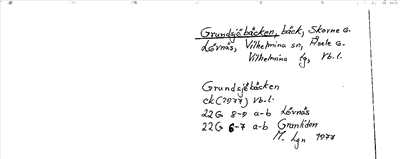 Grundsjöbäcken, bäck, Skorne o.
Lövnäs, Vilhelmina sn, Åsele o.
Vilhelmina lg, Vb.l.
Grundsjöbäcken
ek (1977) Vb.l.
22G 8-9 a-b Lövnäs
22G 6-7 a-b Granliden
M. Lgn 1977